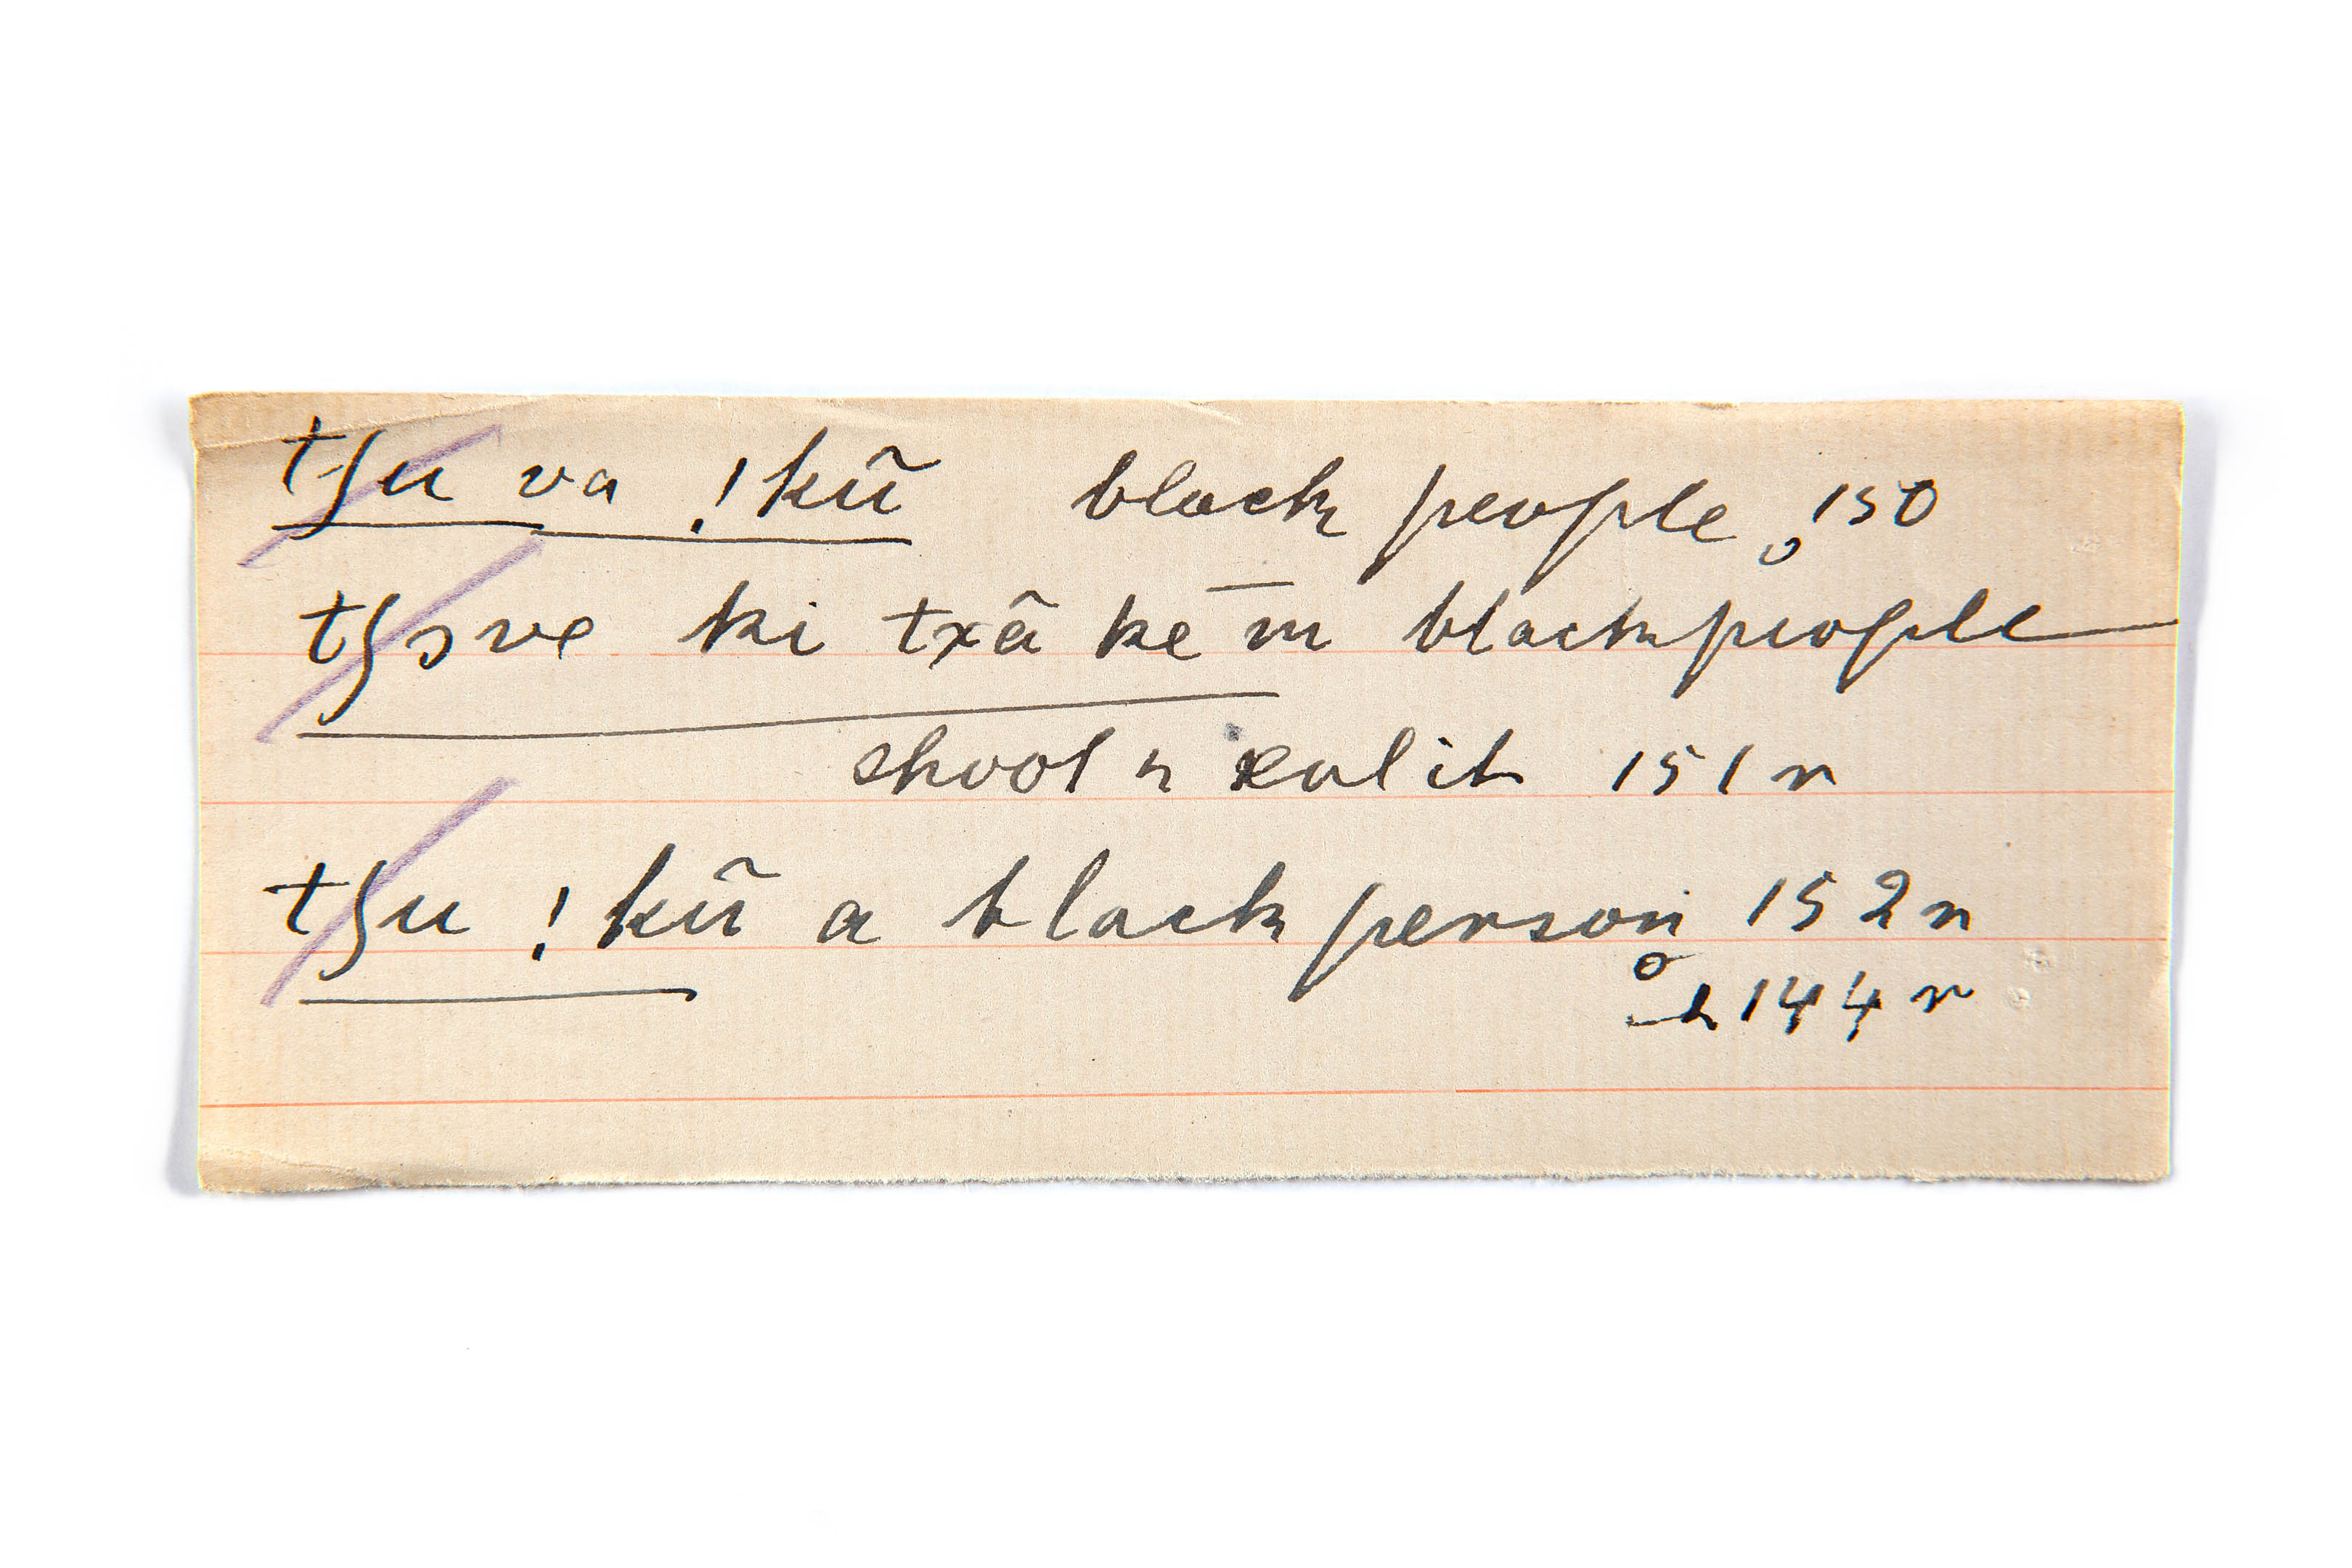 tʃu va !kũ black people, 150
tʃɔve ki txã ke m̄ black people
shoot n eat it 151 r
tʃu !kũ a black person 152 r
144 r